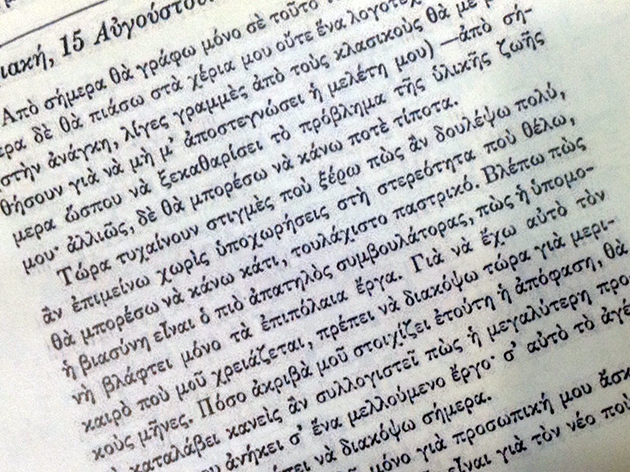 ιακή, 15 Αὐγούστου
Ἀπὸ σήμερα θὰ γράφω μόνο σὲ τοῦτο
ερα δὲ θὰ πιάσω στὰ χέρια μου οὔτε ἕνα λογοτεχ
στὴν ἀνάγκη, λίγες γραμμὲς ἀπὸ τοὺς κλασικοὺς θὰ μὲ
θήσουν γιὰ νὰ μὴ μ' ἀποστεγνώσει ἡ μελέτη μου) —ἀπὸ σή-
μερα ὥσπου νὰ ξεκαθαρίσει τὸ πρόβλημα τῆς ὑλικῆς ζωῆς
μου· ἀλλιῶς, δὲ θὰ μπορέσω νὰ κάνω ποτὲ τίποτα.
Τώρα τυχαίνουν στιγμὲς ποὺ ξέρω πὼς ἂν δουλέψω πολύ,
ἂν ἐπιμείνω χωρὶς ὑποχωρήσεις στὴ στερεότητα ποὺ θέλω,
θὰ μπορέσω νὰ κάνω κάτι, τουλάχιστο παστρικό. Βλέπω πὼς
ἡ βιασύνη εἶναι ὁ πιὸ ἀπατηλὸς συμβουλάτορας, πὼς ἡ ὑπομο-
νὴ βλάφτει μόνο τὰ ἐπιπόλαια ἔργα. Γιὰ νὰ ἔχω αὐτὸ τὸν
καιρὸ ποὺ μοῦ χρειάζεται, πρέπει νὰ διακόψω τώρα γιὰ μερι-
κοὺς μῆνες. Πόσο ἀκριβὰ μοῦ στοιχίζει ἐτούτη ἡ ἀπόφαση, θὰ
καταλάβει κανεὶς ἂν συλλογιστεῖ πὼς ἡ μεγαλύτερη προ
ου ἀνήκει σ' ἕνα μελλούμενο ἔργο· σ' αὐτὸ τὸ ἀγέ
πει νὰ διακόψω σήμερα.
μόνο γιὰ προσωπική μου ἄσκ
εἶναι γιὰ τὸν νέο ποὺ